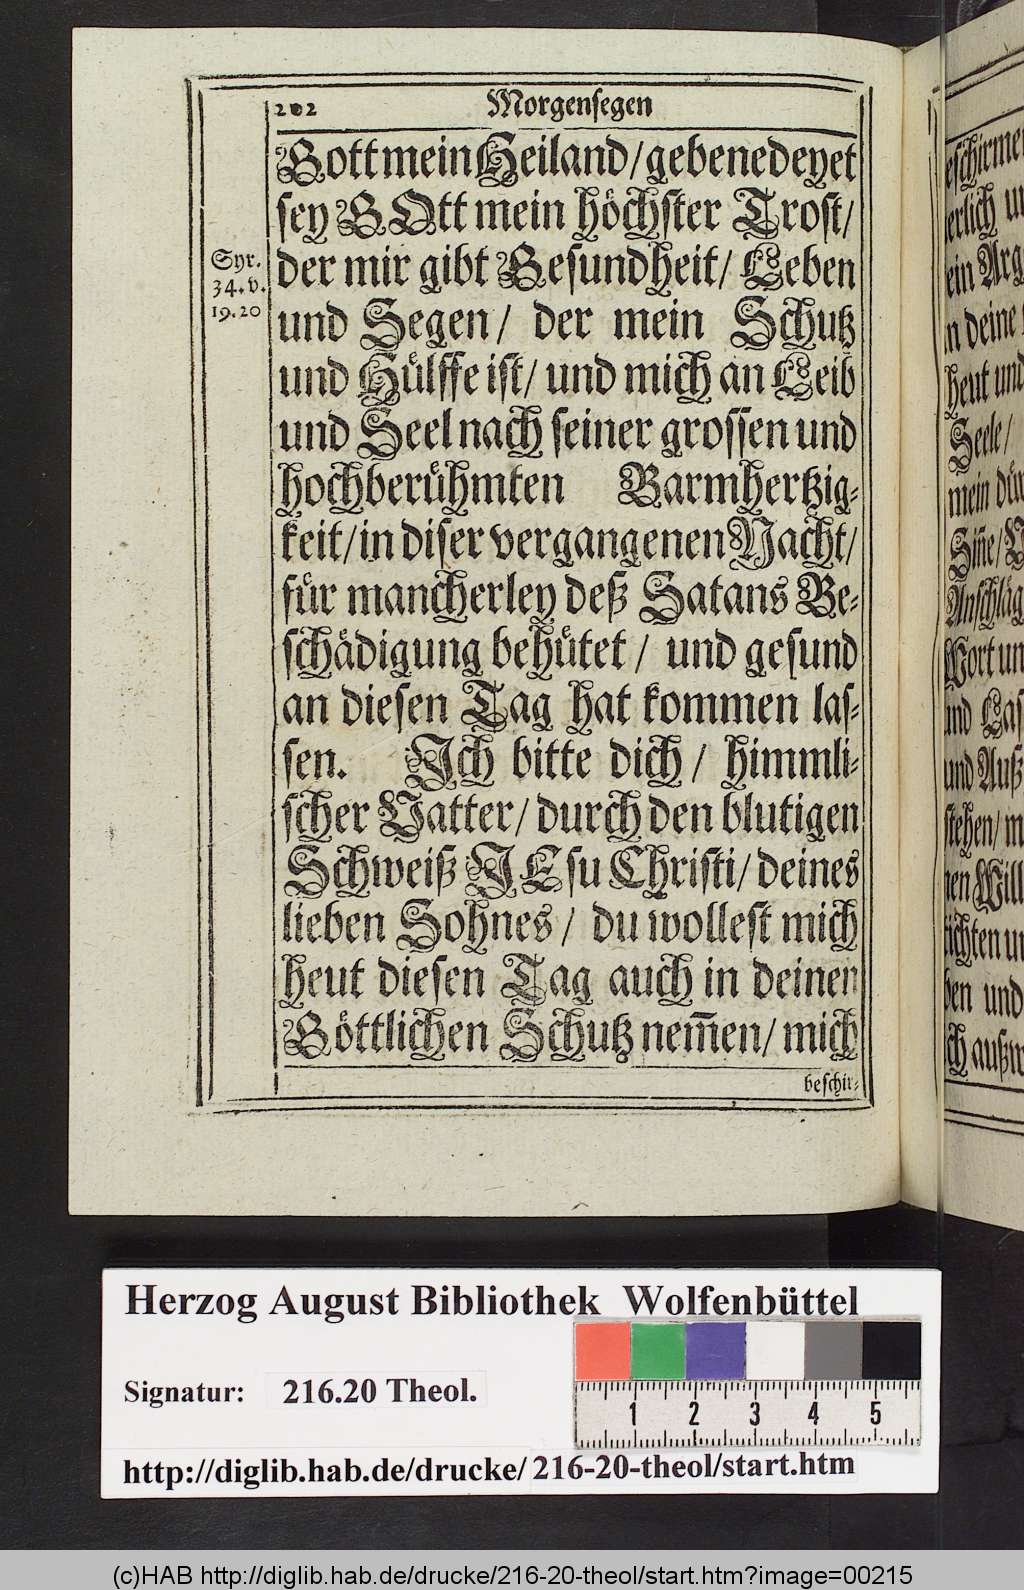 202 Morgensegen
Gott mein Heiland/ gebenedeyet
sey GOtt mein höchster Trost/
der mir gibt Gesundheit/ Leben
und Segen/ der mein Schutz
und Hülffe ist/ und mich an Leib
und Seel nach seiner grossen und
hochberühmten Barmhertzig-
keit/ in diser vergangenen Nacht/
für mancherley deß Satans Be-
schädigung behütet/ und gesund
an diesen Tag hat kommen las-
sen. Ich bitte dich/ himmli-
scher Vatter/ durch den blutigen
Schweiß JEsu Christi/ deines
lieben Sohnes/ du wollest mich
heut diesen Tag auch in deinen
Göttlichen Schutz nem̃en/ mich
beschir-
Syr.
34. v.
19. 20
eschirme
erlich u
ein Arg
n deine
heut und
Seele/
mein dür
Siñe/ V
Anschläg
Wort un
und Las
und Auß
stehen/ m
nen Will
ichten u
ben und
ch außw
Herzog August Bibliothek Wolfenbüttel
Signatur: 216.20 Theol.
1 2 3 4 5
http://diglib.hab.de/drucke/216-20-theol/start.htm
(c)HAB http://diglib.hab.de/drucke/216-20-theol/start.htm?image=00215